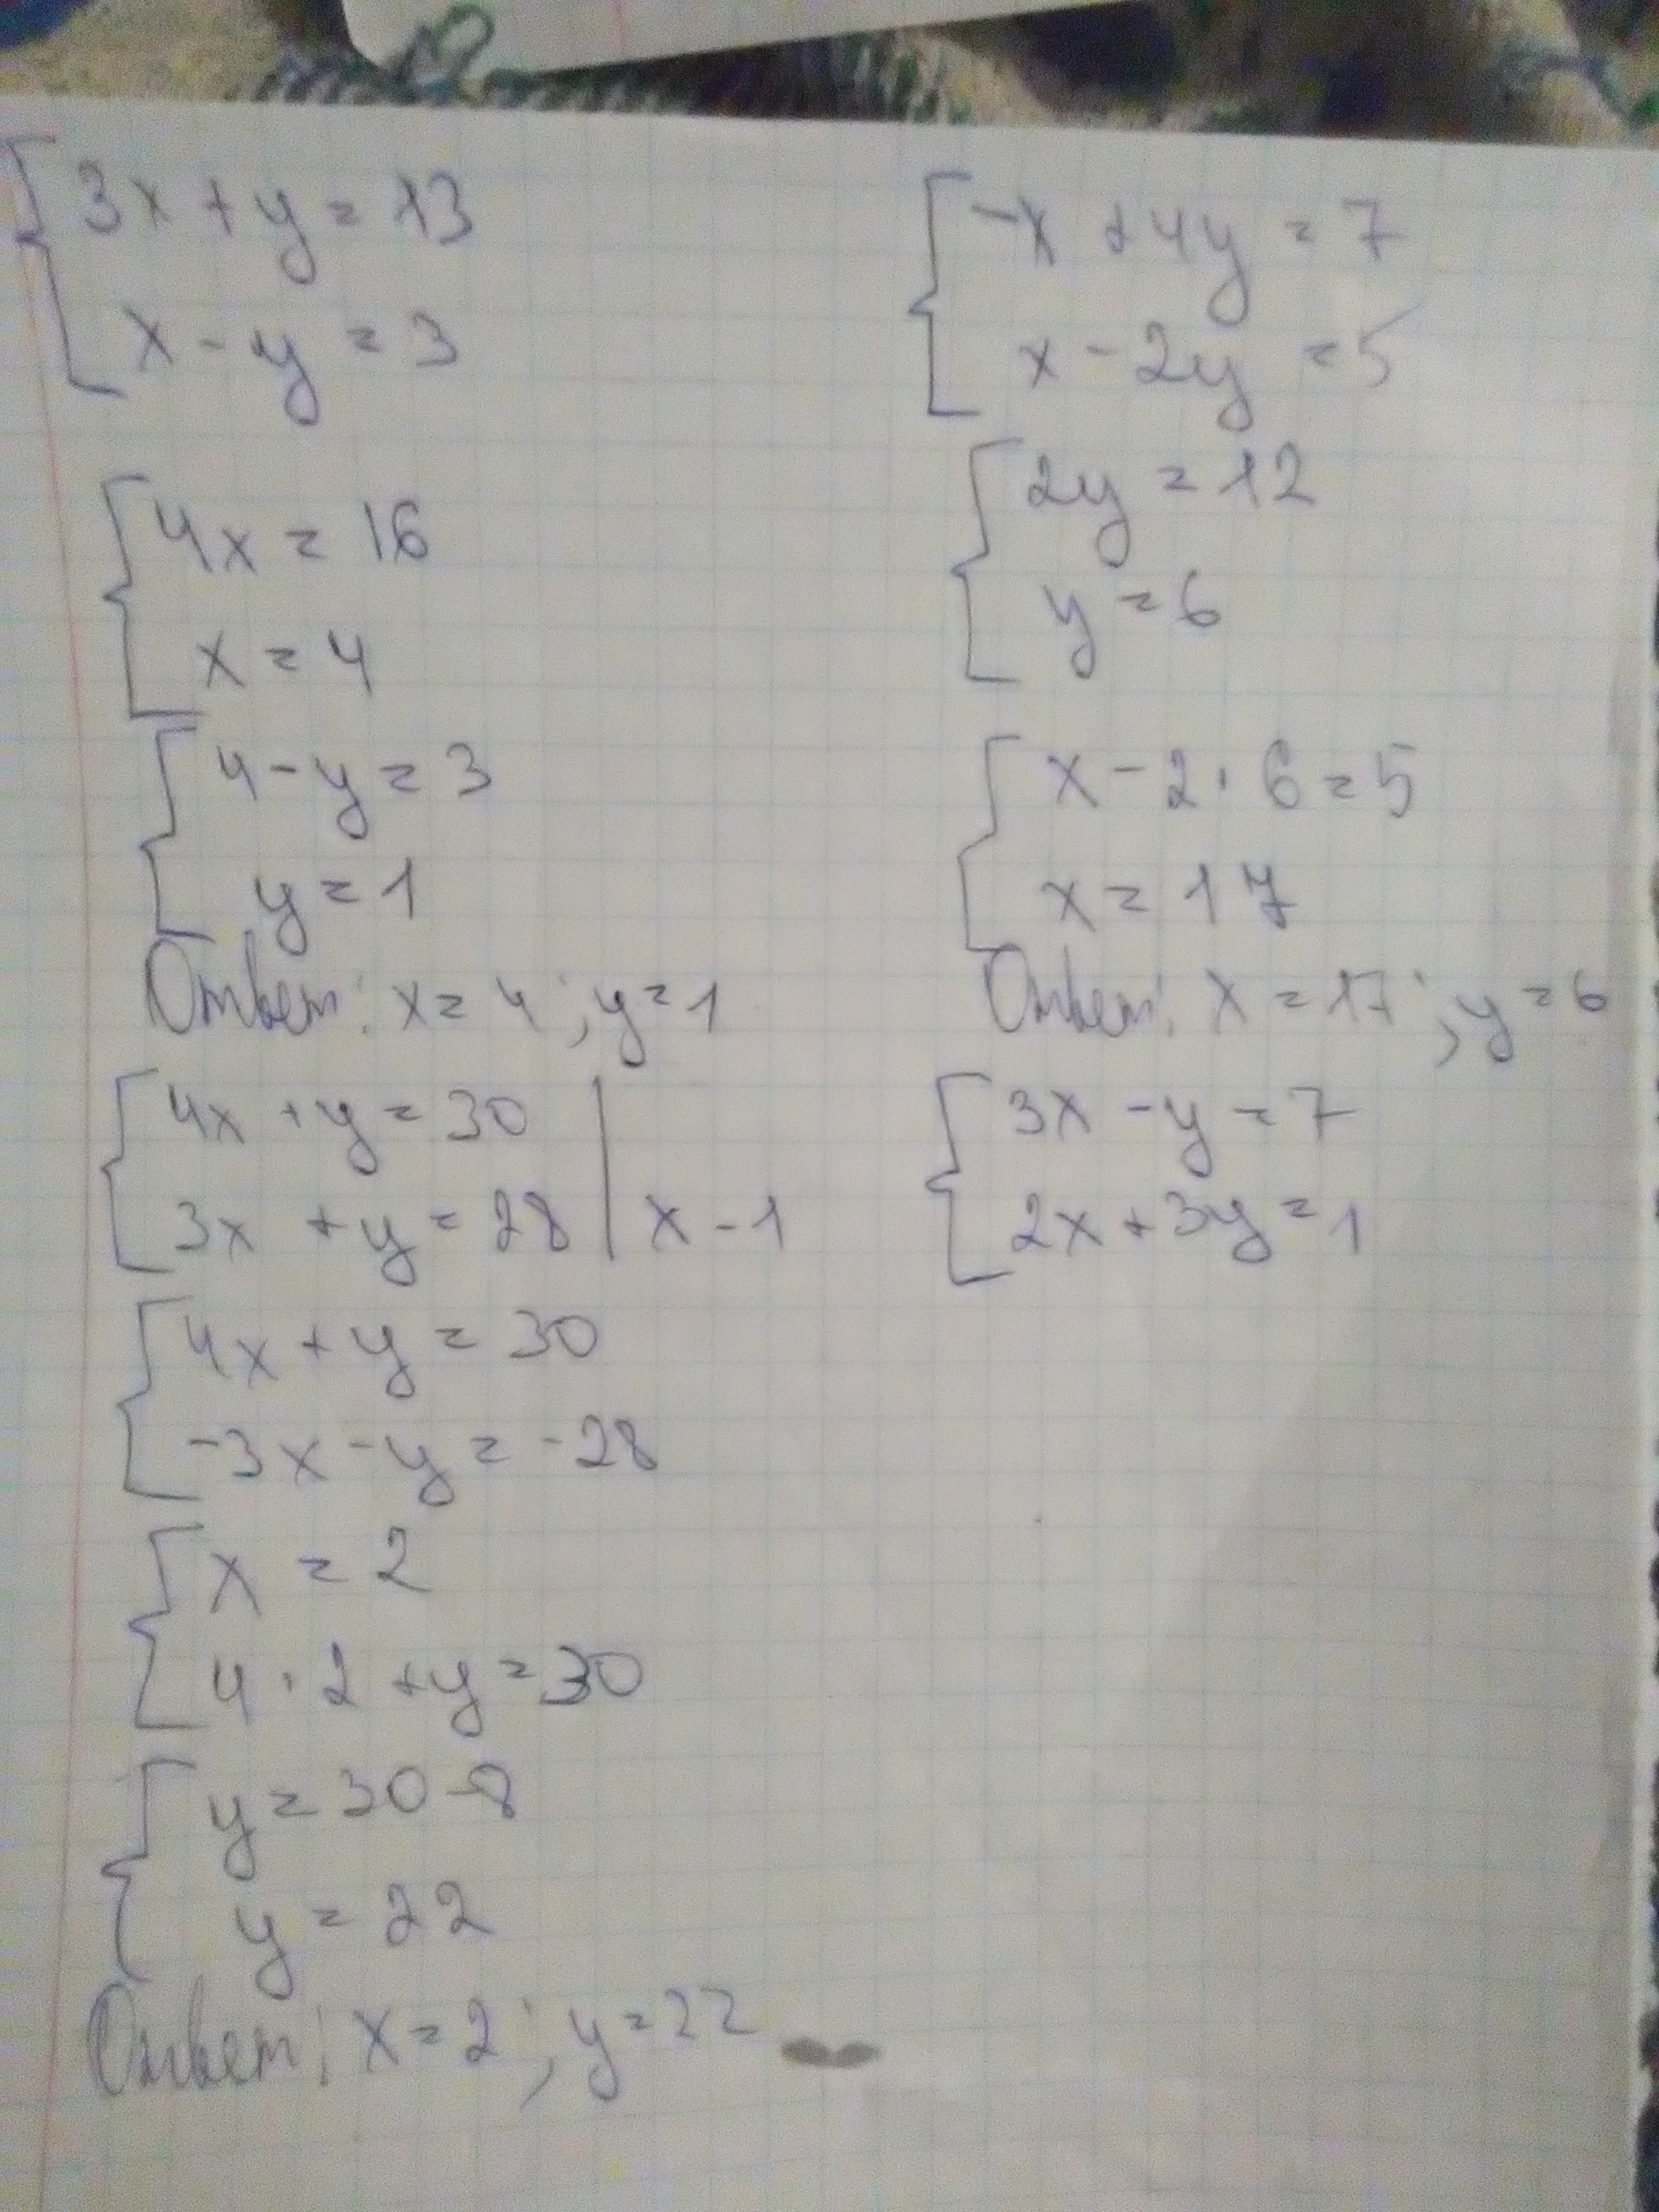 3x + y = 13
x - y = 3
4x = 16
x = 4
4 - y = 3
y = 1
Ответ: x = 4; y = 1
4x + y = 30
3x + y = 28 | x - 1
4x + y = 30
-3x - y = -28
x = 2
4 · 2 + y = 30
y = 30 - 8
y = 22
Ответ: x = 2; y = 22
-x + 4y = 7
x - 2y = 5
2y = 12
y = 6
x - 2 · 6 = 5
x = 17
Ответ: x = 17; y = 6
3x - y = 7
2x + 3y = 1